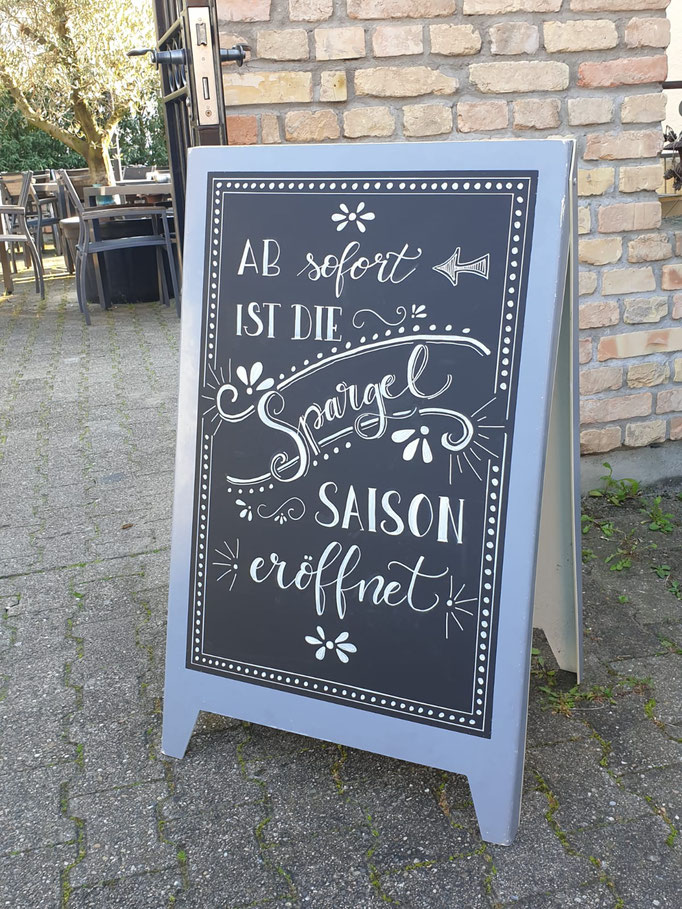 AB sofort
IST DIE
Spargel
SAISON
eröffnet